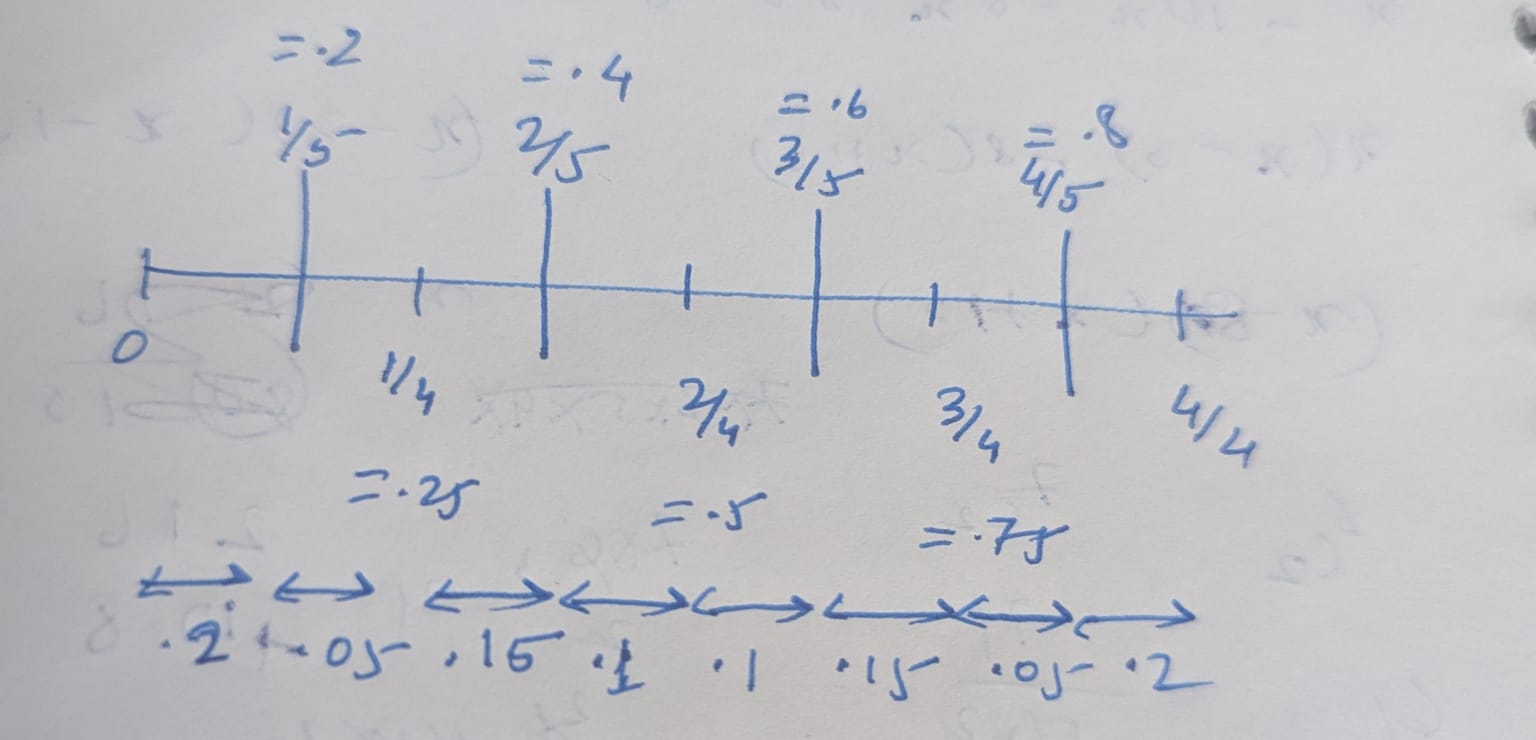 =.2 =.4 =.6 =.8
1/5 2/5 3/5 4/5
0 1/4 2/4 3/4 4/4
=.25 =.5 =.75
.2 .05 .15 .1 .1 .15 .05 .2